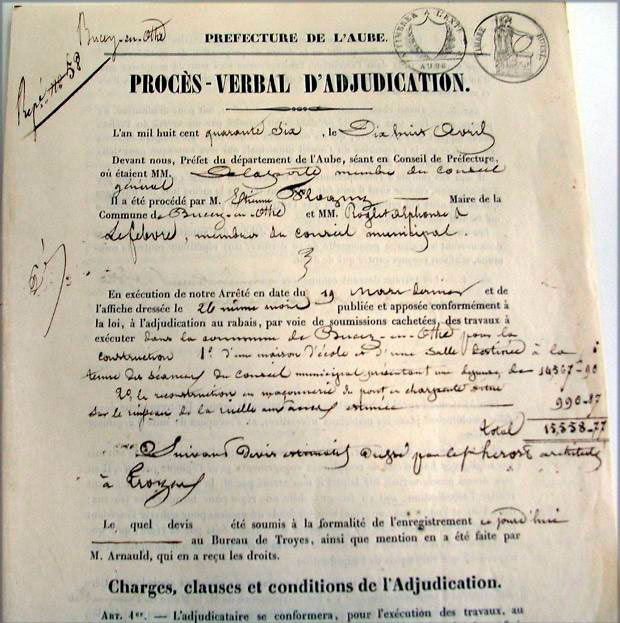 Bucey-en-Othe
Repre. No 58
PREFECTURE DE L'AUBE.
TIMBRE A L'EXTR
AUBE
TIMBRE ROYAL
PROCÈS-VERBAL D'ADJUDICATION.
L'an mil huit cent quarante six, le Dix huit Avril
Devant nous, Préfet du département de l'Aube, séant en Conseil de Préfecture,
où étaient MM. Delaporte membre du Conseil
général
Il a été procédé par M. Etienne Maire de la
Commune de Bucey-en-Othe et MM. Roglet alphonse &
Lefebvre, membres du conseil municipal.
En exécution de notre Arrêté en date du 19 Mars dernier et de
l'affiche dressée le 26 même mois publiée et apposée conformément à
la loi, à l'adjudication au rabais, par voie de soumissions cachetées, des travaux à
exécuter dans la commune de Bucey-en-Othe pour la
construction 1° d'une maison d'école et d'une salle destinée à la
tenue des séances du Conseil municipal présentant une dépense de 14567-90
2° la reconstruction en maçonnerie du pont en charpente
sur le ruisseau de la ruelle estimée 990-87
total 15,558-77
Suivant devis estimatif dressé par architecte
à Troyes
Le quel devis été soumis à la formalité de l'enregistrement ce jourd'hui
au Bureau de Troyes, ainsi que mention en a été faite par
M. Arnauld, qui en a reçu les droits.
Charges, clauses et conditions de l'Adjudication.
ART. 1er. — L'adjudicataire se conformera, pour l'exécution des travaux, au